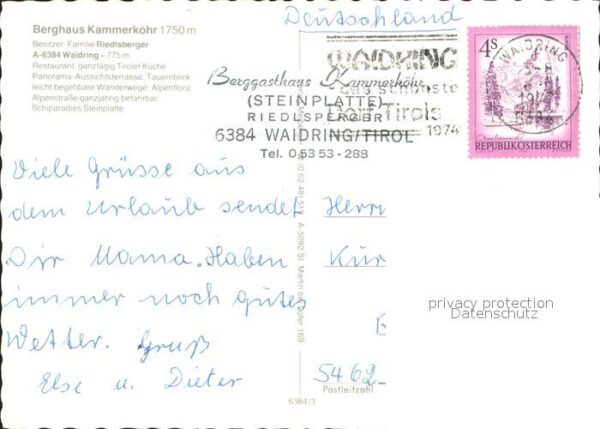 Berghaus Kammerköhr 1750 m
Besitzer: Familie Riedlsberger
A-6384 Waidring – 775 m
Restaurant, ganztägig Tiroler Küche
Panorama-Aussichtsterrasse, Tauernblick
leicht begehbare Wanderwege, Alpenflora
Alpenstraße ganzjährig befahrbar
Schiparadies Steinplatte
Deutschland
WAIDRING
das schönste
Dorf Tirols
1974
Berggasthaus Kammerköhr
(STEINPLATTE)
RIEDLSPERGER
6384 WAIDRING/TIROL
Tel. 0 53 53 - 288
4S
REPUBLIK ÖSTERREICH
WAIDRING
Viele Grüsse aus
dem Urlaub sendet
Dir Mama. Haben
immer noch gutes
Wetter. Gruß
Else u. Dieter
Herrn
Kur
5462
Postleitzahl
A 5092 St. Martin bei Lofer 169
6384/3
privacy protection
Datenschutz